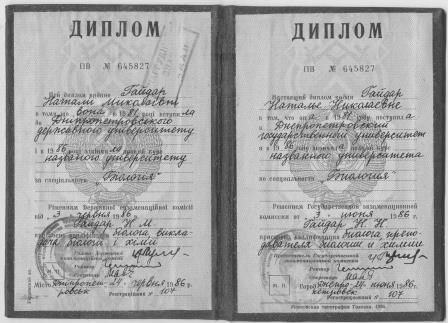 ДИПЛОМ
ПВ № 645827
Цей диплом видано Гайдар
Наталі Миколаївні
в тому, що вона в 1981 році вступила
до Дніпропетровського
державного університету
і в 1986 році закінчила повний курс
названого університету
за спеціальністю
„Біологія"
Рішенням Державної екзаменаційної комісії
від 3 червня 1986 р.
Гайдар Н. М.
присвоєно кваліфікацію біолога, викла-
дача біології і хімії
Голова Державної
екзаменаційної комісії
Ректор
Секретар
М. П.
Місто Дніпропет- 24 червня 1986 р.
ровськ
Реєстраційний № 107
ДИПЛОМ
ПВ № 645827
Настоящий диплом выдан Гайдар
Наталье Николаевне
в том, что она в 1981 году поступила
в Днепропетровский
государственный университет
и в 1986 году окончила полный курс
названного университета
по специальности
„Биология"
Решением Государственной экзаменационной
комиссии от 3 июня 1986 г.
Гайдар Н. Н.
присвоена квалификация биолога, препо-
давателя биологии и химии
Председатель Государственной
экзаменационной комиссии
Ректор
Секретарь
М. П.
Город Днепро- 24 июня 1986 г.
петровск
Регистрационный № 107
Московская типография Гознака. 1984.